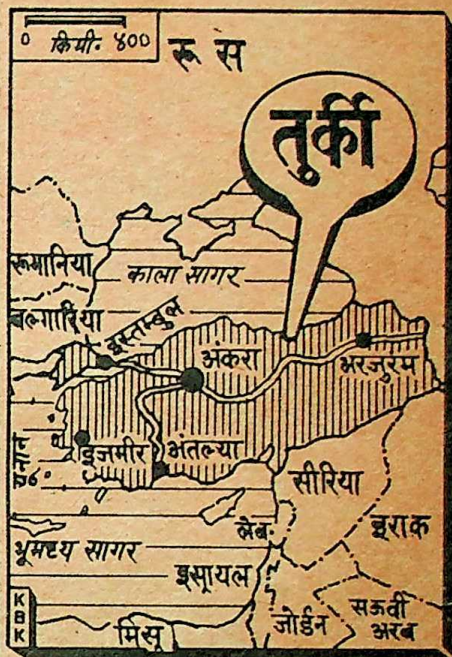 ० किमी. ४००
रूस
तुर्की
रूमानिया
काला सागर
बल्गारिया
इस्तम्बुल
अंकरा
अरजुरूम
यूनान
इजमीर
अंतल्या
सीरिया
लेब.
इराक
भूमध्य सागर
इस्रायल
सऊदी
अरब
जोर्डन
मिस्र
KBK